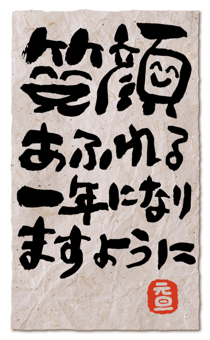 笑顔
あふれる
一年になり
ますように
元旦